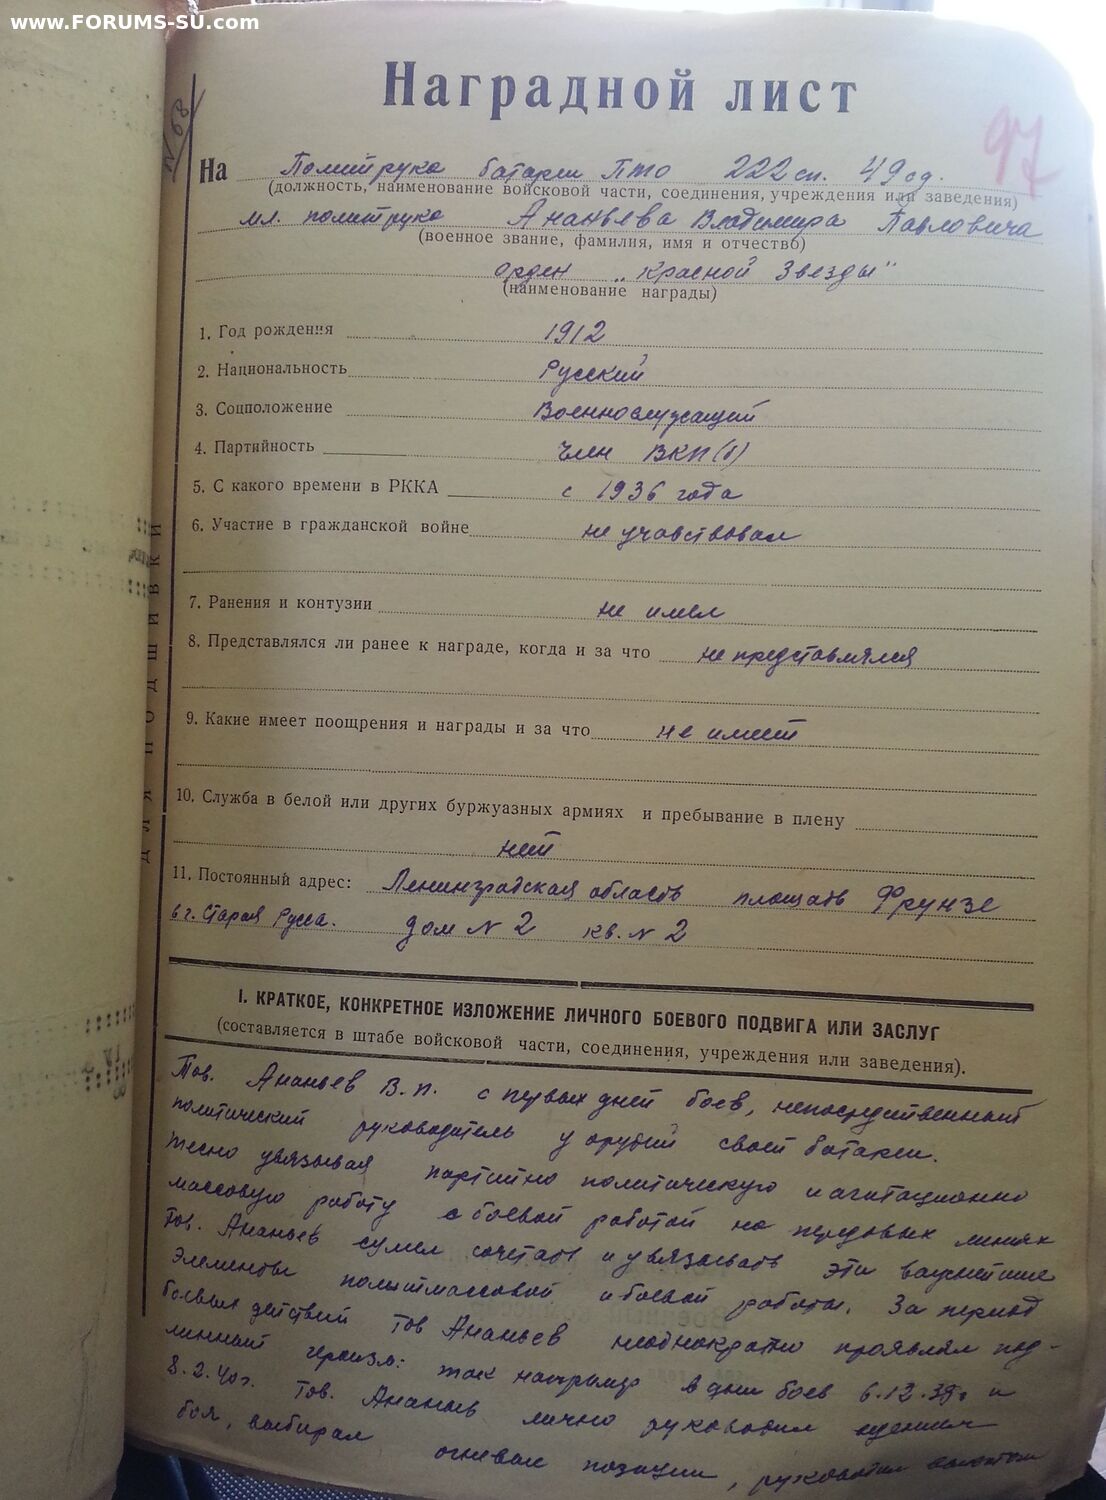 www.FORUMS-SU.com
Наградной лист
97
N 68
На Политрука батареи ПТО 222 сп. 49 сд.
(должность, наименование войсковой части, соединения, учреждения или заведения)
мл. политрука Ананьева Владимира Павловича
(военное звание, фамилия, имя и отчество)
орден „Красной Звезды"
(наименование награды)
1. Год рождения 1912
2. Национальность Русский
3. Соцположение Военнослужащий
4. Партийность член ВКП(б)
5. С какого времени в РККА с 1936 года
6. Участие в гражданской войне не учавствовал
7. Ранения и контузии не имел
8. Представлялся ли ранее к награде, когда и за что не представлялся
9. Какие имеет поощрения и награды и за что не имеет
10. Служба в белой или других буржуазных армиях и пребывание в плену
нет
11. Постоянный адрес: Ленинградская область площадь Фрунзе
в г. Старая Русса. дом N 2 кв. N 2
ДЛЯ ПОДШИВКИ
I. КРАТКОЕ, КОНКРЕТНОЕ ИЗЛОЖЕНИЕ ЛИЧНОГО БОЕВОГО ПОДВИГА ИЛИ ЗАСЛУГ
(составляется в штабе войсковой части, соединения, учреждения или заведения).
Тов. Ананьев В.П. с первых дней боев, непосредственный
политический руководитель у орудий своей батареи.
Тесно увязывая партийно политическую и агитационно
массовую работу с боевой работой на передовых линиях
тов. Ананьев сумел сочетать и увязывать эти важнейшие
элементы политмассовой и боевой работы. За период
боевых действий тов Ананьев неоднократно проявлял под-
линный героизм: так например в дни боев 6.12.39г и
8.2.40г. тов. Ананьев лично руководил ведением
боя, выбирал огневые позиции, руководил